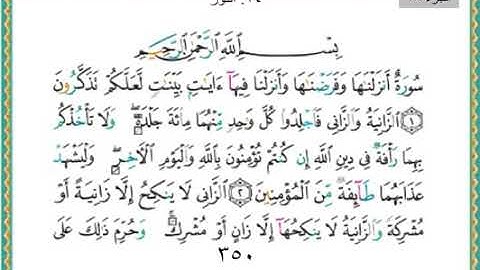 ٢٤. النور
بِسْمِ اللَّهِ الرَّحْمَٰنِ الرَّحِيمِ
سُورَةٌ أَنزَلْنَاهَا وَفَرَضْنَاهَا وَأَنزَلْنَا فِيهَآ ءَايَاتٍۭ بَيِّنَاتٍ لَّعَلَّكُمْ تَذَكَّرُونَ
﴿١﴾ الزَّانِيَةُ وَالزَّانِي فَاجْلِدُوا كُلَّ وَاحِدٍ مِّنْهُمَا مِائَةَ جَلْدَةٍ ۖ وَلَا تَأْخُذْكُم
بِهِمَا رَأْفَةٌ فِي دِينِ اللَّهِ إِن كُنتُمْ تُؤْمِنُونَ بِاللَّهِ وَالْيَوْمِ الْآخِرِ ۖ وَلْيَشْهَدْ
عَذَابَهُمَا طَآئِفَةٌ مِّنَ الْمُؤْمِنِينَ ﴿٢﴾ الزَّانِي لَا يَنكِحُ إِلَّا زَانِيَةً أَوْ
مُشْرِكَةً وَالزَّانِيَةُ لَا يَنكِحُهَآ إِلَّا زَانٍ أَوْ مُشْرِكٌ ۚ وَحُرِّمَ ذَٰلِكَ عَلَى
٣٥٠